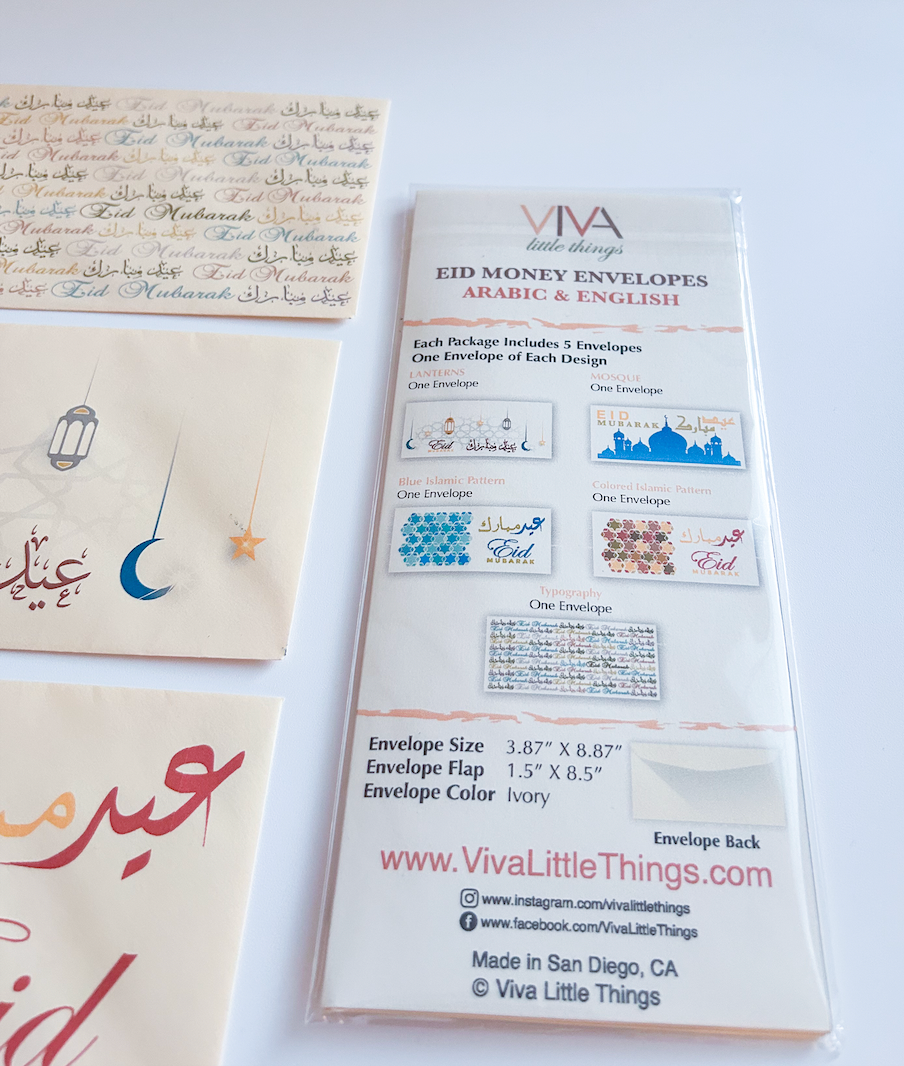 Eid Mubarak عيد مبارك Eid Mubarak عيد مبارك
Eid Mubarak عيد مبارك Eid Mubarak
عيد مبارك Eid Mubarak عيد مبارك
Eid Mubarak عيد مبارك Eid Mubarak
عيد مبارك Eid Mubarak عيد مبارك
Mubarak عيد مبارك Eid Mubarak
عيد مبارك Eid Mubarak عيد مبارك
Mubarak عيد مبارك Eid Mubarak
عيد مبارك Eid Mubarak عيد مبارك
Mubarak عيد مبارك Eid Mubarak
عيد مبارك Eid Mubarak عيد مبارك
عيد
عيد
Eid
VIVA
little things
EID MONEY ENVELOPES
ARABIC & ENGLISH
Each Package Includes 5 Envelopes
One Envelope of Each Design
LANTERNS
One Envelope
Eid
MUBARAK
عيد مبارك
MOSQUE
One Envelope
EID
MUBARAK
عيد مبارك
Blue Islamic Pattern
One Envelope
عيد مبارك
Eid
MUBARAK
Colored Islamic Pattern
One Envelope
عيد مبارك
Eid
MUBARAK
Typography
One Envelope
Envelope Size 3.87" X 8.87"
Envelope Flap 1.5" X 8.5"
Envelope Color Ivory
Envelope Back
www.VivaLittleThings.com
www.instagram.com/vivalittlethings
www.facebook.com/VivaLittleThings
Made in San Diego, CA
© Viva Little Things